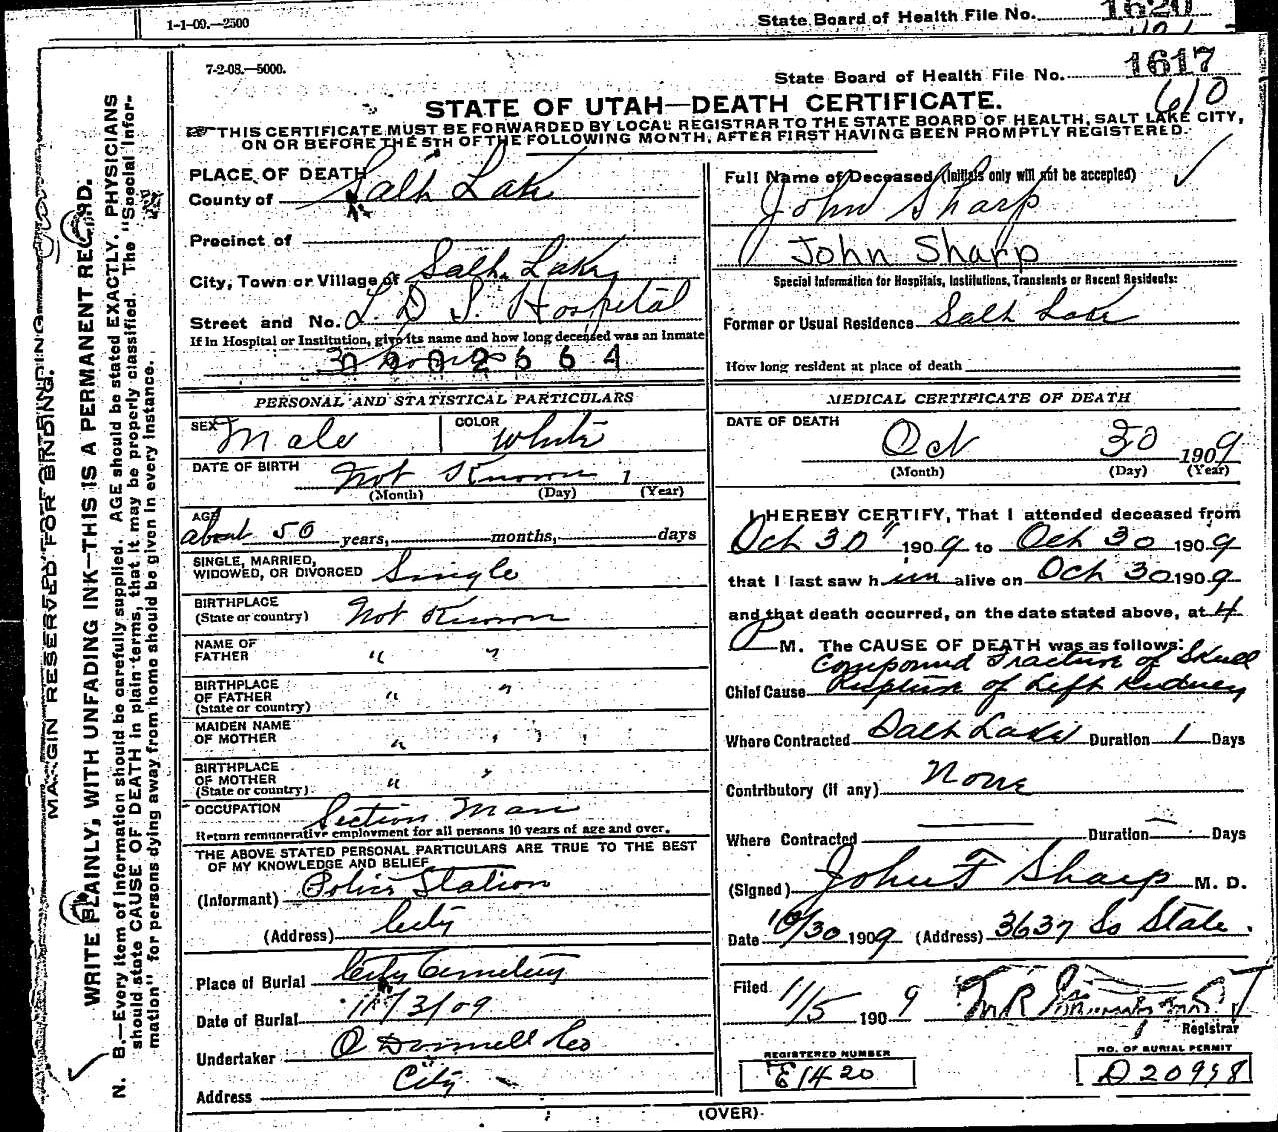 1-1-09.—2500
State Board of Health File No. 1620
7-2-08.—5000.
State Board of Health File No. 1617
610
STATE OF UTAH—DEATH CERTIFICATE.
THIS CERTIFICATE MUST BE FORWARDED BY LOCAL REGISTRAR TO THE STATE BOARD OF HEALTH, SALT LAKE CITY,
ON OR BEFORE THE 5TH OF THE FOLLOWING MONTH, AFTER FIRST HAVING BEEN PROMPTLY REGISTERED.
MARGIN RESERVED FOR BINDING.
WRITE PLAINLY, WITH UNFADING INK—THIS IS A PERMANENT RECORD.
N. B.—Every item of information should be carefully supplied. AGE should be stated EXACTLY. PHYSICIANS
should state CAUSE OF DEATH in plain terms, that it may be properly classified. The "Special Infor-
mation" for persons dying away from home should be given in every instance.
PLACE OF DEATH
County of Salt Lake
Precinct of
City, Town or Village of Salt Lake
Street and No. L. D. S. Hospital
If in Hospital or Institution, give its name and how long deceased was an Inmate
3 hours
PERSONAL AND STATISTICAL PARTICULARS
SEX Male COLOR White
DATE OF BIRTH Not Known 1
(Month) (Day) (Year)
AGE about 50 years, months, days
SINGLE, MARRIED,
WIDOWED, OR DIVORCED Single
BIRTHPLACE
(State or country) Not Known
NAME OF
FATHER " "
BIRTHPLACE
OF FATHER " "
(State or country)
MAIDEN NAME
OF MOTHER " "
BIRTHPLACE
OF MOTHER " "
(State or country)
OCCUPATION Section Man
Return remunerative employment for all persons 10 years of age and over.
THE ABOVE STATED PERSONAL PARTICULARS ARE TRUE TO THE BEST
OF MY KNOWLEDGE AND BELIEF
(Informant) Police Station
(Address) City
Place of Burial City Cemetery
Date of Burial 11/3/09
Undertaker O Donnell & Co
Address City
Full Name of Deceased (Initials only will not be accepted)
John Sharp
John Sharp
Special Information for Hospitals, Institutions, Transients or Recent Residents:
Former or Usual Residence Salt Lake
How long resident at place of death
MEDICAL CERTIFICATE OF DEATH
DATE OF DEATH
Oct 30 1909
(Month) (Day) (Year)
I HEREBY CERTIFY, That I attended deceased from
Oct 30" 1909 to Oct 30 1909
that I last saw him alive on Oct 30 1909
and that death occurred, on the date stated above, at 4
P M. The CAUSE OF DEATH was as follows:
Compound Fracture of Skull
Chief Cause Rupture of Left Kidney
Where Contracted Salt Lake Duration 1 Days
Contributory (if any) None
Where Contracted — Duration — Days
(Signed) John F Sharp M. D.
Date 10/30 1909 (Address) 3637 So State.
Filed 11/5 1909
Registrar
REGISTERED NUMBER
E1420
NO. OF BURIAL PERMIT
D20998
(OVER)